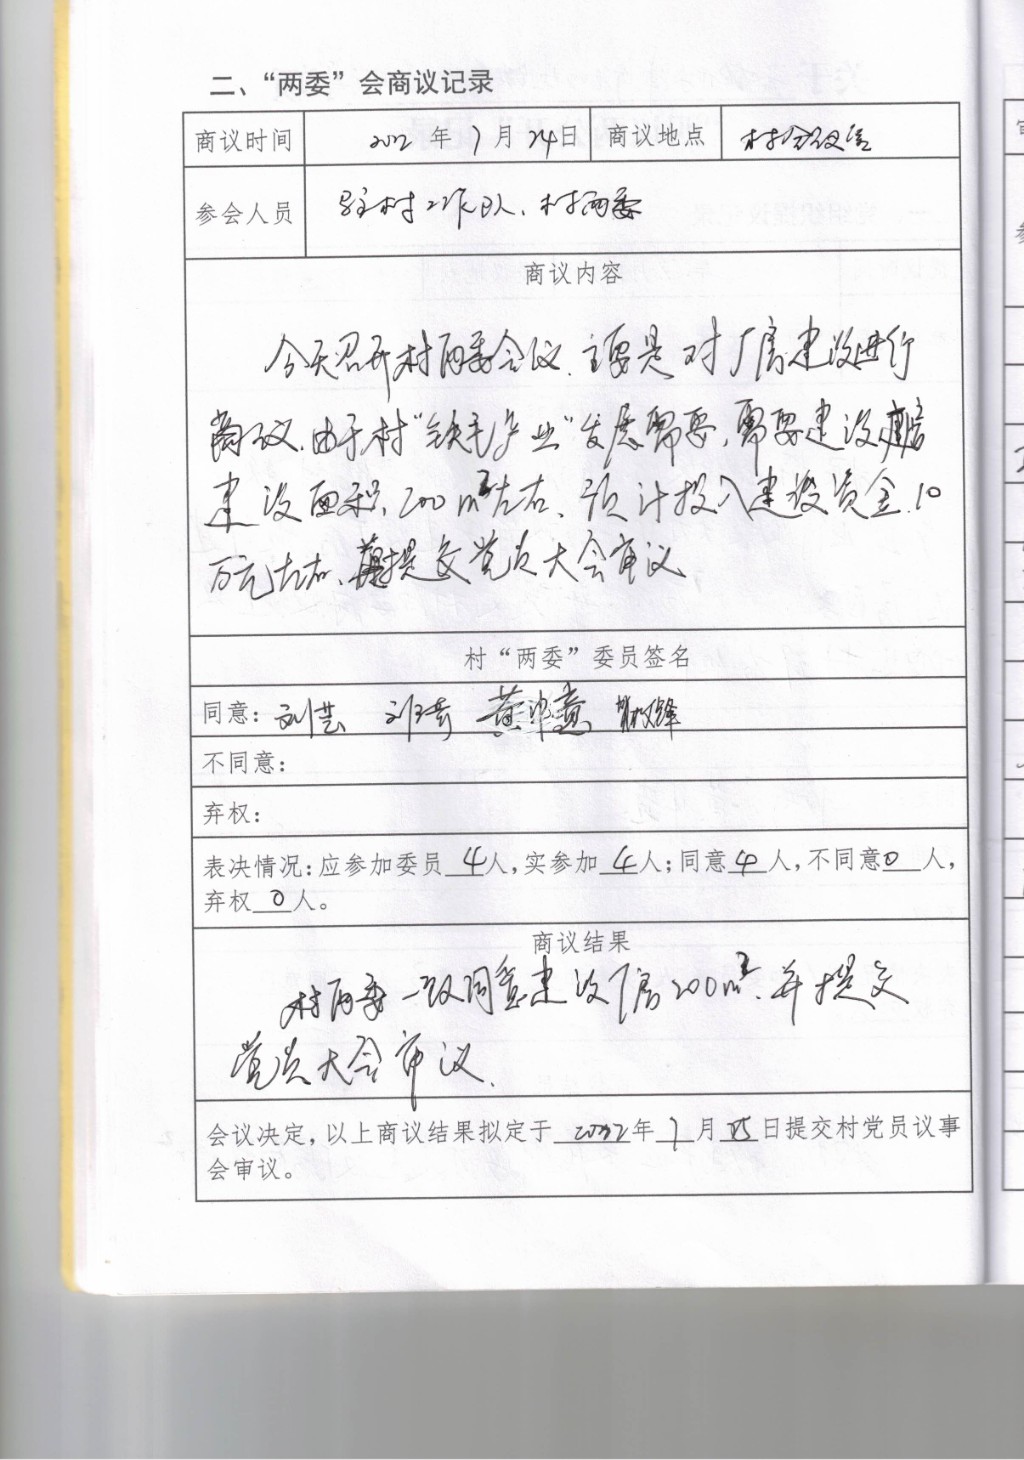 二、“两委”会商议记录
商议时间 2022年7月24日 商议地点 村会议室
参会人员 驻村工作队、村两委
商议内容
今天召开村两委会议.主要是对厂房建设进行
商议.由于村“铁毛产业”发展需要,需要建设
建设面积200m²左右、预计投入建设资金10
万元左右、提交党员大会审议
村“两委”委员签名
同意：刘芸
不同意：
弃权：
表决情况：应参加委员 4 人，实参加 4 人；同意 4 人，不同意 0 人，
弃权 0 人。
商议结果
村两委一致同意建设厂房200m²、并提交
党员大会审议.
会议决定，以上商议结果拟定于 2022 年 7 月 25 日提交村党员议事
会审议。